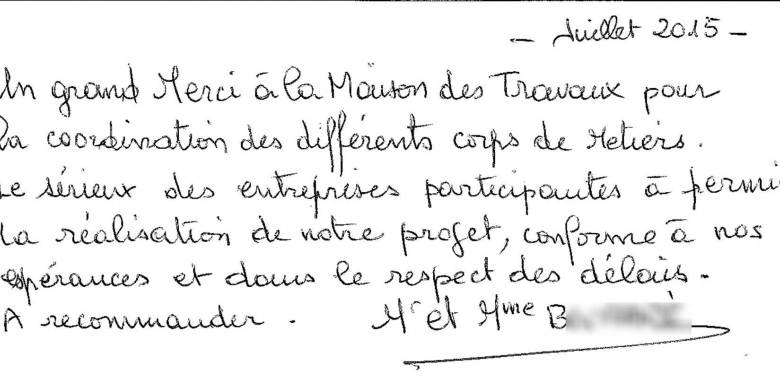 - Juillet 2015 -
Un grand Merci à la Maison des Travaux pour
la coordination des différents corps de Metiers.
Le sérieux des entreprises participantes à permis
la réalisation de notre projet, conforme à nos
espérances et dans le respect des délais.
A recommander. Mr et Mme B